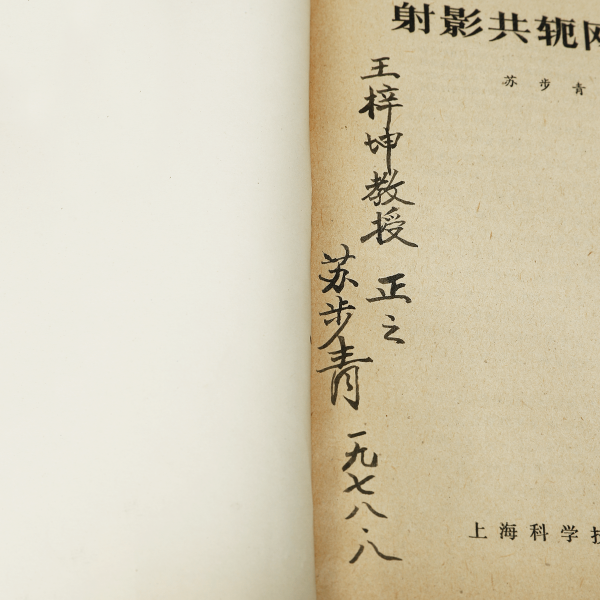 射影共轭网
苏步青
王梓坤教授
正之
苏步青
一九七八.八
上海科学技